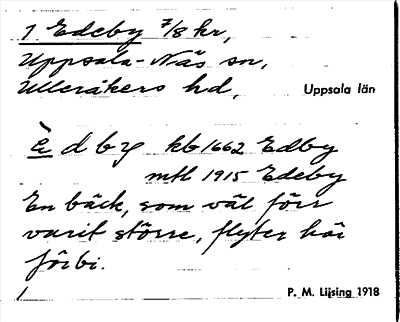 1 Edeby 7/8 kr,
Uppsala-Näs sn,
Ulleråkers hd, Uppsala län
è d b y kb 1662 Edby
mtl 1915 Edeby
En bäck, som väl förr
varit större, flyter här
förbi.
1 P. M. Lijsing 1918